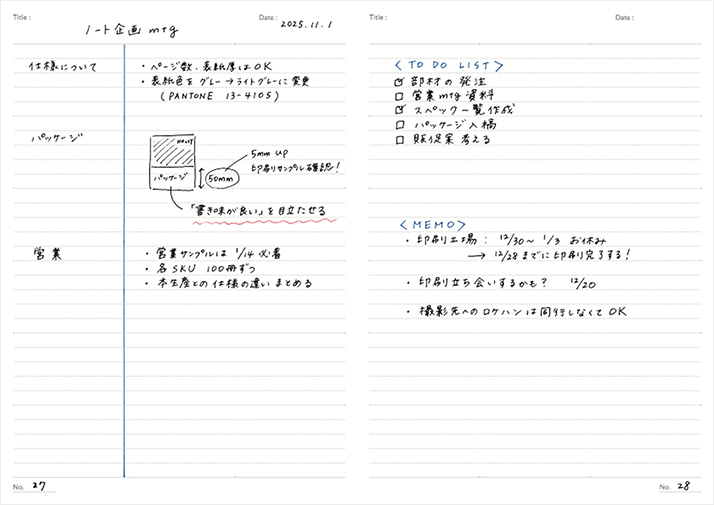 Title :
Date :
ノート企画 mtg
2025.11.1
仕様について
・ページ数、表紙厚はOK
・表紙色をグレー→ライトグレーに変更
(PANTONE 13-4105)
パッケージ
NOLTY
パッケージ
50mm
5mm up
印刷サンプル確認!
「書き味が良い」を目立たせる
営業
・営業サンプルは 1/14 必着
・各SKU 100冊ずつ
・本生産との仕様の違いまとめる
No. 27
Title :
Date :
<TO DO LIST>
☑ 部材の発注
□ 営業mtg資料
☑ スペック一覧作成
□ パッケージ入稿
□ 販促案考える
<MEMO>
・印刷工場: 12/30~ 1/3 お休み
→ 12/28までに印刷完了する!
・印刷立ち会いするかも? 12/20
・撮影先へのロケハンは同行しなくてOK
No. 28